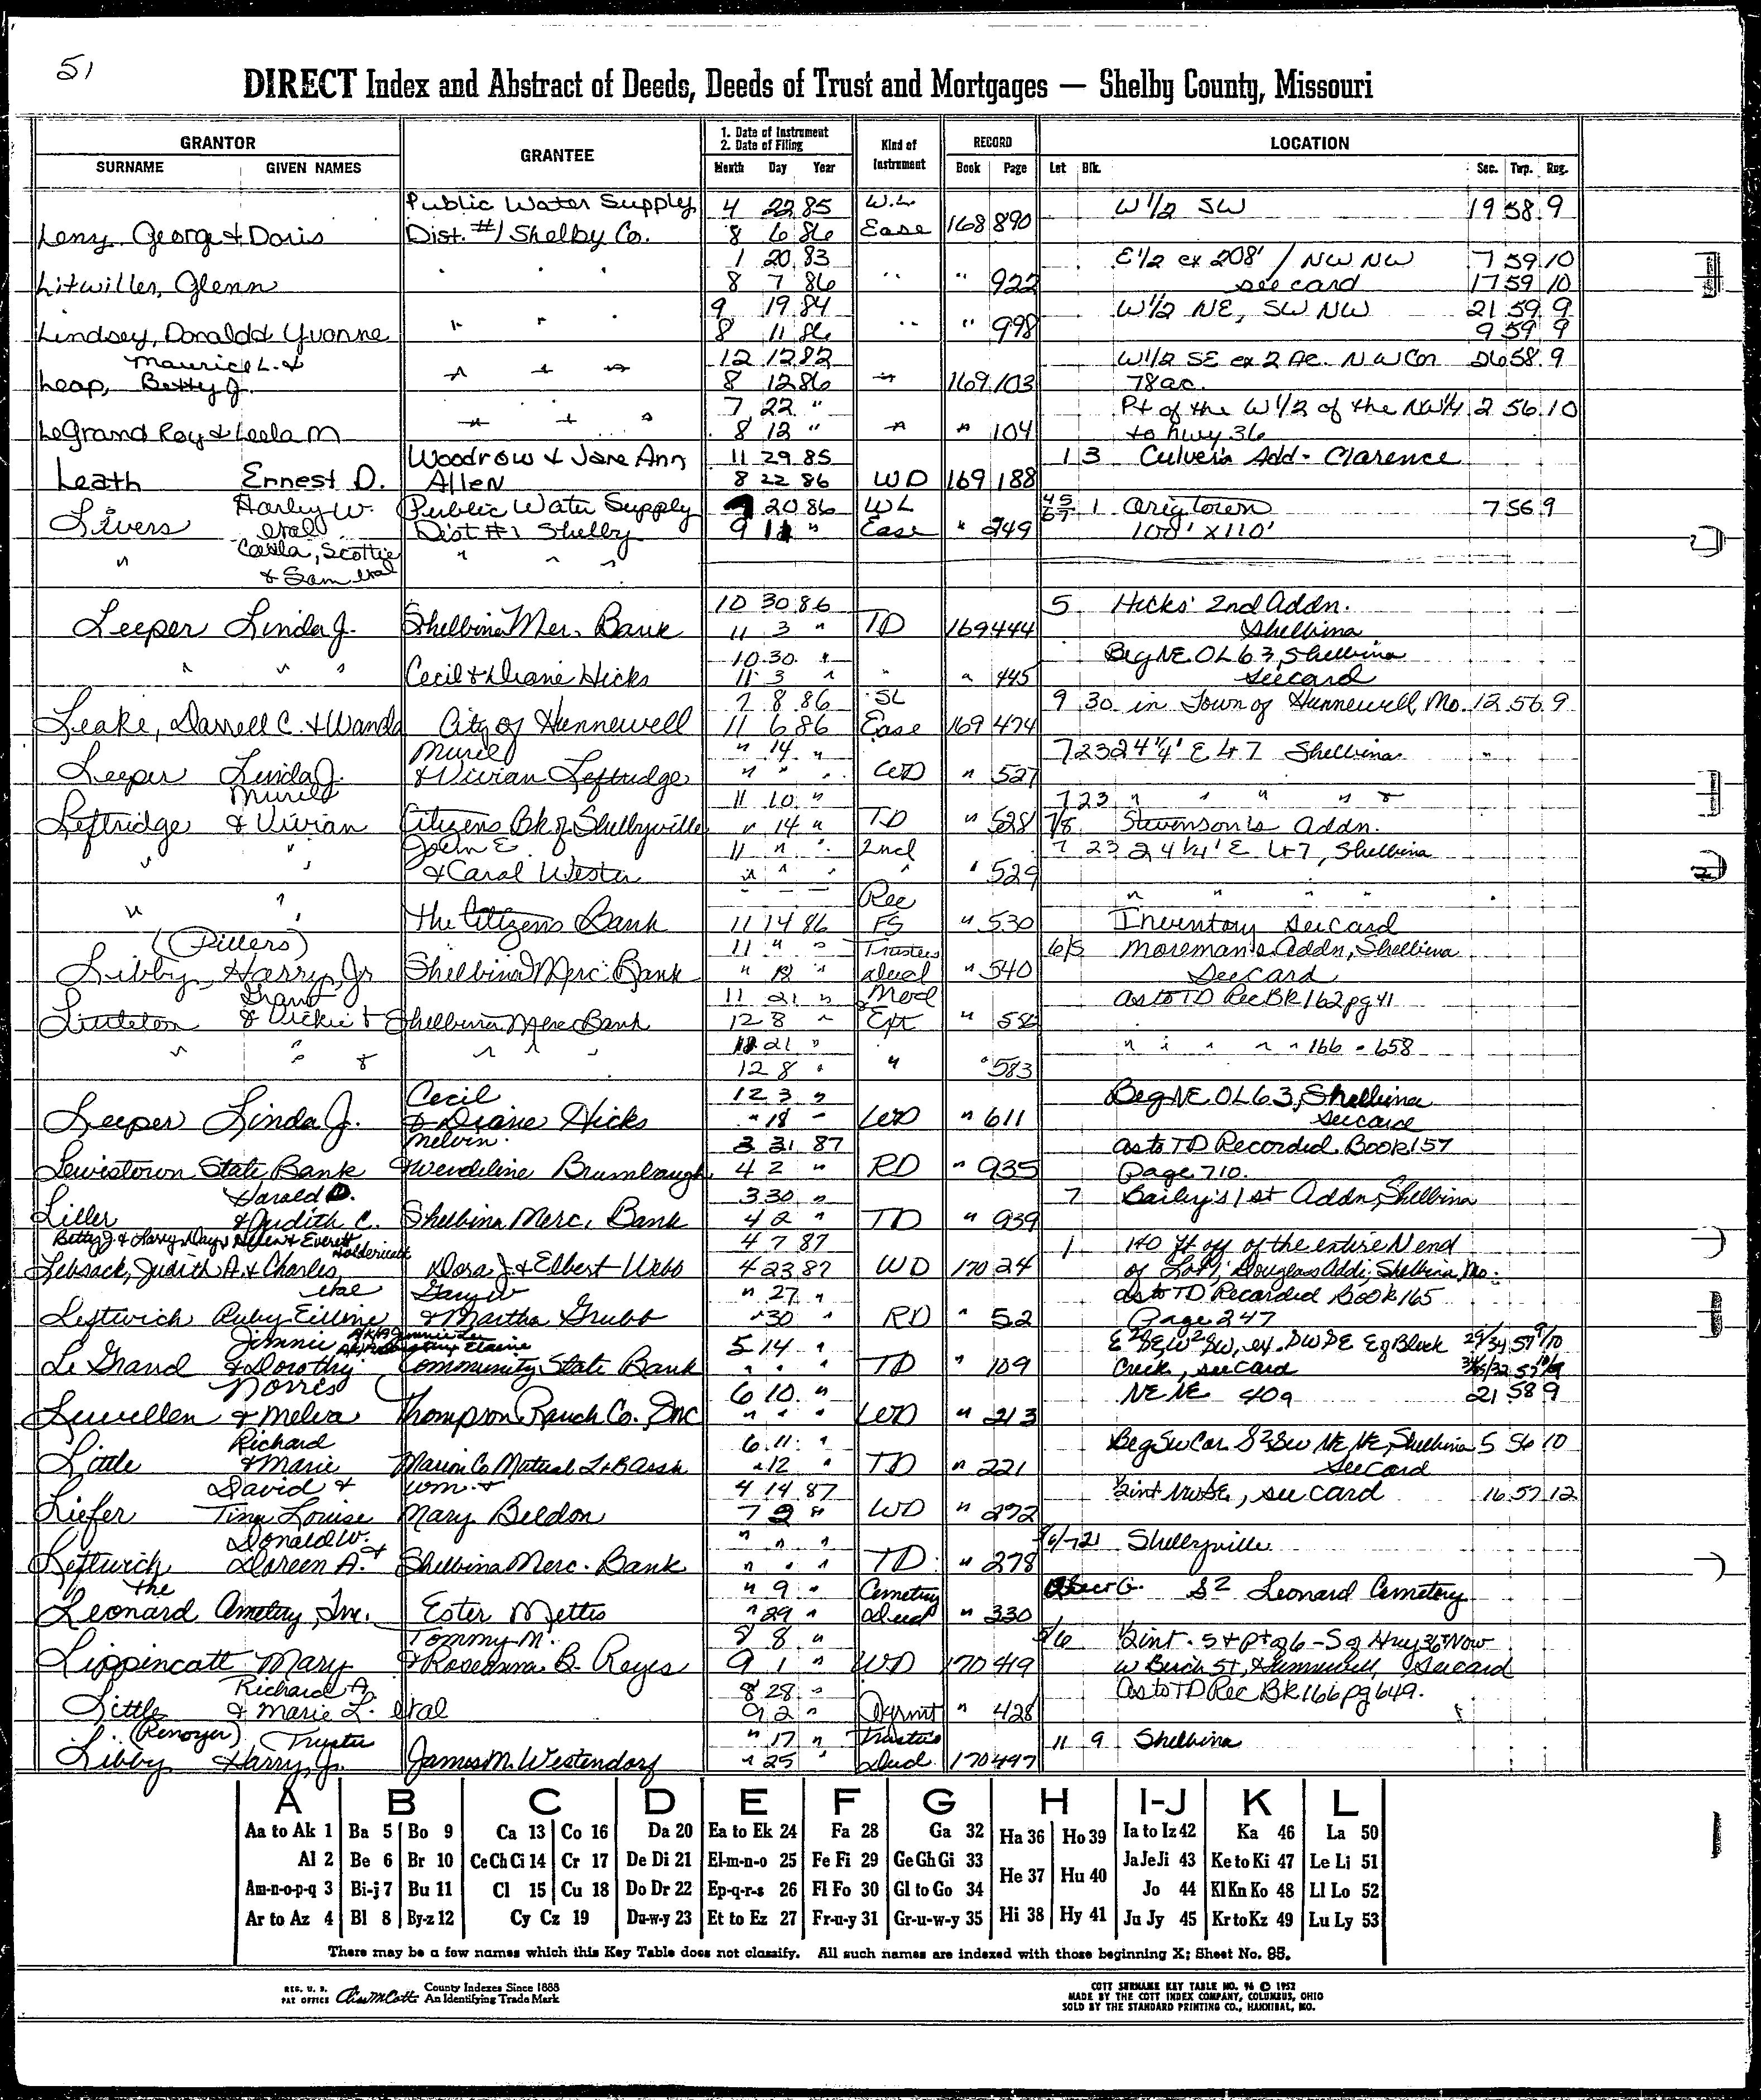 51
DIRECT Index and Abstract of Deeds, Deeds of Trust and Mortgages — Shelby County, Missouri
GRANTOR GRANTEE 1. Date of Instrument 2. Date of Filing Kind of Instrument RECORD LOCATION
SURNAME GIVEN NAMES Month Day Year Book Page Lot Blk. Sec. Twp. Rng.
Public Water Supply 4 22 85 W.L. W 1/2 SW 19 58 9
Leny George & Doris Dist. #1 Shelby Co. 8 6 86 Ease 168 890
1 20 83 E 1/2 ex 208' / NW NW 7 59 10
Litwiller, Glenn " " " 8 7 86 " " 922 see card 17 59 10
9 19 84 W 1/2 NE, SW NW 21 59 9
Lindsey, Donald & Yvonne " " " 8 11 86 " " 998 9 59 9
Maurice L. & 12 12 82 W 1/2 SE ex 2 Ac. NW Cor 26 58 9
Leap, Betty J. " " " 8 12 86 " 169 103 78 ac.
7 22 " Pt of the W 1/2 of the NW 1/4 2 56 10
LeGrand Roy & Leela M " " " 8 12 " " " 104 to hwy 36
Woodrow & Jane Ann 11 29 85 1 3 Culver's Add - Clarence
Leath Ernest D. Allen 8 22 86 WD 169 188
Harley W. Public Water Supply 20 86 WL 45 67 1 Orig town 7 56 9
Livers etal Dist #1 Shelby 9 11 " Ease " 249 100' x 110'
" Carla, Scottie " " "
& Sam etal
10 30 86 5 Hicks' 2nd Addn.
Leeper Linda J. Shelbina Mer. Bank 11 3 " TD 169 444 Shelbina
10 30 " Beg NE OL 63, Shelbina
" " " Cecil & Diane Hicks 11 3 " " " 445 see card
7 8 86 SL 9 30 in Town of Hunnewell, Mo. 12 56 9
Leake, Darrell C. & Wanda City of Hunnewell 11 6 86 Ease 169 474
Muriel " 14 " 7 23 24 1/4' E L 7 Shelbina "
Leeper Linda J. & Vivian Leftridge " " " WD " 527
Muriel 11 10 " 7 23 " " " " &
Leftridge & Vivian Citizens Bk of Shelbyville " 14 " TD " 528 7/8 Stevenson's Addn.
John E. 11 " " 2nd 7 23 24 1/4' E L 7, Shelbina
" " & Carol Wester " " " " " 529
Rec " " " "
" " The Citizens Bank 11 14 86 FS " 530 Inventory see card
(Pillers) 11 " " Trustees 6/5 Moreman's Addn, Shelbina
Libby, Harry, Jr Shelbina Merc. Bank " 18 " deed " 540 see card
Grant 11 21 " Mod as to TD Rec BK 162 pg 41
Littleton & Vickie Shelbina Merc Bank 12 8 " & Ext " 582
21 " " " " " " 166 " 658
" " & " " " 12 8 " " " 583
Cecil 12 3 " Beg NE OL 63, Shelbina
Leeper Linda J. & Diane Hicks " 18 " WD " 611 see card
Melvin 3 31 87 as to TD Recorded Book 157
Lewistown State Bank & Wendeline Brumbaugh 4 2 " RD " 935 Page 710.
Harold D. 3 30 " 7 Bailey's 1st Addn, Shelbina
Liller & Judith C. Shelbina Merc. Bank 4 2 " TD " 939
Betty J & Larry Day, & Everett Holdericath 4 7 87 1 140 ft off of the entire N end
Lebsack, Judith A. & Charles, Dora J & Elbert Webb 4 23 87 WD 170 24 of Lot 1, Douglass Addi, Shelbina, Mo.
etal Gary W " 27 " as to TD Recorded Book 165
Leftwich Ruby Eilline & Martha Grubb " 30 " RD " 52 Page 247
Jimmie AKA Jimmie Lee 5 14 " E2 SE, W2 SW, ex. SW SE Eg Black
Le Grand & Dorothy Elaine Community State Bank " " " TD " 109 Creek, see card
Norris 6 10 " NE NE 40a 21 58 9
Lewellen & Melva Thompson Ranch Co. Inc " " " WD " 213
Richard 6 11 " Beg SW Cor S2 SW NE NE, Shelbina 5 56 10
Little & Marie Marion Co Mutual L & B Assn " 12 " TD " 221 see card
David & Wm. & 4 14 87 1/2 int NW SE, see card 16 57 12
Liefer Tina Louise Mary Beldon 7 2 " WD " 272
Donald W. " " " 6/7 21 Shelbyville
Leftwich & Doreen A. Shelbina Merc. Bank " " " TD " 278
The " 9 " Cemetery S2 Leonard Cemetery
Leonard Cemetery, Inc. Ester Mettes " 29 " deed " 330
Tommy M. 8 8 " 5/6 1/2 int. 5 & pt of 6 - S of Hwy 36 & Now
Lippincott Mary & Roseanna B. Reyes 9 1 " WD 170 419 W Birch St, Hunnewell, see card
Richard A. 8 28 " As to TD Rec BK 166 pg 649.
Little & Marie L. etal 9 2 " Agrmt " 428
(Renoyer) Trustee " 17 " Trustee's 11 9 Shelbina
Libby Harry, Jr. James M. Westendorf " 25 " deed 170 497
A B C D E F G H I-J K L
Aa to Ak 1 Ba 5 Bo 9 Ca 13 Co 16 Da 20 Ea to Ek 24 Fa 28 Ga 32 Ha 36 Ho 39 Ia to Iz 42 Ka 46 La 50
Al 2 Be 6 Br 10 Ce Ch Ci 14 Cr 17 De Di 21 El-m-n-o 25 Fe Fi 29 Ge Gh Gi 33 He 37 Hu 40 Ja Je Ji 43 Ke to Ki 47 Le Li 51
Am-n-o-p-q 3 Bi-j 7 Bu 11 Cl 15 Cu 18 Do Dr 22 Ep-q-r-s 26 Fl Fo 30 Gl to Go 34 Jo 44 Kl Kn Ko 48 Ll Lo 52
Ar to Az 4 Bl 8 By-z 12 Cy Cz 19 Du-w-y 23 Et to Ez 27 Fr-u-y 31 Gr-u-w-y 35 Hi 38 Hy 41 Ju Jy 45 Kr to Kz 49 Lu Ly 53
There may be a few names which this Key Table does not classify. All such names are indexed with those beginning X; Sheet No. 95.
REG. U. S. PAT OFFICE County Indexes Since 1888 An Identifying Trade Mark
COTT SURNAME KEY TABLE NO. 96 © 1952
MADE BY THE COTT INDEX COMPANY, COLUMBUS, OHIO
SOLD BY THE STANDARD PRINTING CO., HANNIBAL, MO.